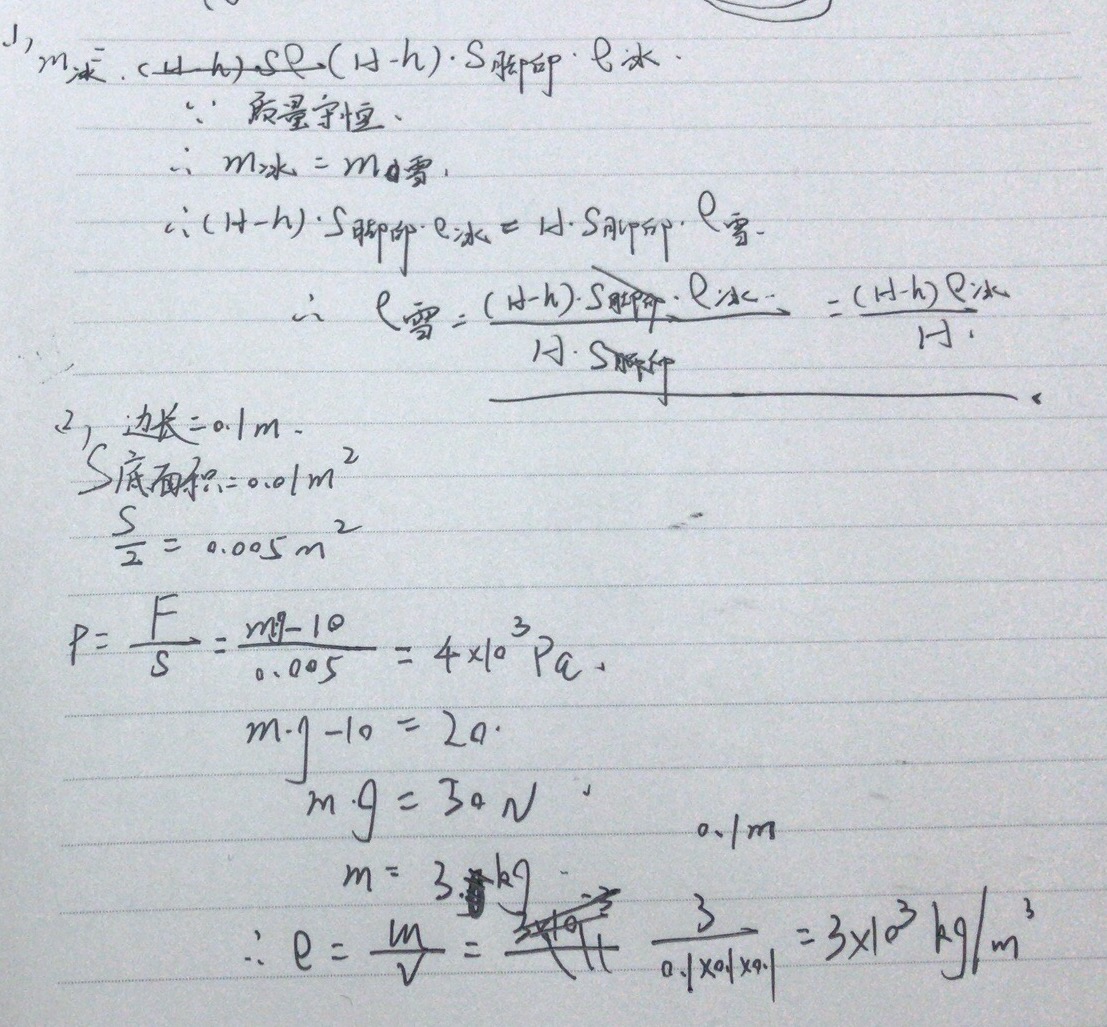 1, m冰 = (H-h)Sρ (H-h)·S脚印·ρ冰.
∵ 质量守恒.
∴ m冰 = m雪.
∴ (H-h)·S脚印·ρ冰 = H·S脚印·ρ雪.
∴ ρ雪 = (H-h)·S脚印·ρ冰 / H·S脚印 = (H-h)ρ冰 / H.
2, 边长=0.1m.
S底面积=0.01m²
S/2 = 0.005m²
P = F/S = mg-10 / 0.005 = 4×10³Pa.
m·g-10 = 20.
m·g = 30N
0.1m
m = 3 kg
∴ ρ = m/V = 3 / 0.1×0.1×0.1 = 3×10³ kg/m³